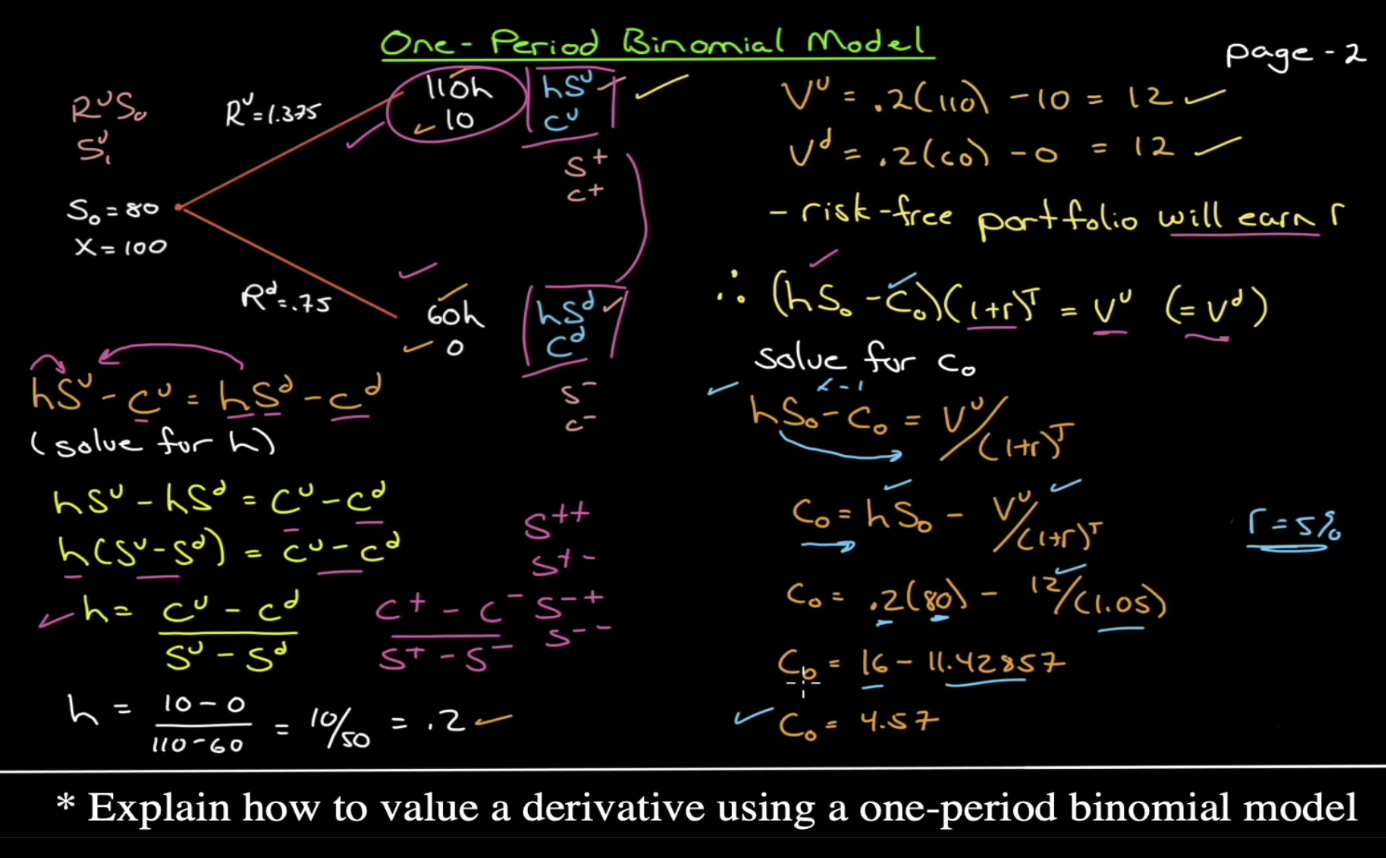 One-Period Binomial Model
page-2
RᵁS₀
S₁ᵁ
Rᵁ=1.375
110h
10
hSᵁ
Cᵁ
S⁺
C⁺
S₀=80
X=100
Rᵈ=.75
60h
0
hSᵈ
Cᵈ
S⁻
C⁻
hSᵁ-Cᵁ=hSᵈ-Cᵈ
(solve for h)
hSᵁ-hSᵈ=Cᵁ-Cᵈ
h(Sᵁ-Sᵈ)=Cᵁ-Cᵈ
h= Cᵁ-Cᵈ
Sᵁ-Sᵈ
C⁺-C⁻
S⁺-S⁻
S⁺⁺
S⁺⁻
S⁻⁺
S⁻⁻
h = 10-0 = 10/50 = .2
110-60
Vᵁ = .2(110) -10 = 12
Vᵈ = .2(60) -0 = 12
- risk-free portfolio will earn r
∴ (hS₀-C₀)(1+r)ᵀ = Vᵁ (=Vᵈ)
solve for C₀
×-1
hS₀-C₀ = Vᵁ/(1+r)ᵀ
C₀ = hS₀ - Vᵁ/(1+r)ᵀ
r=5%
C₀ = .2(80) - 12/(1.05)
C₀ = 16-11.42857
C₀ = 4.57
* Explain how to value a derivative using a one-period binomial model